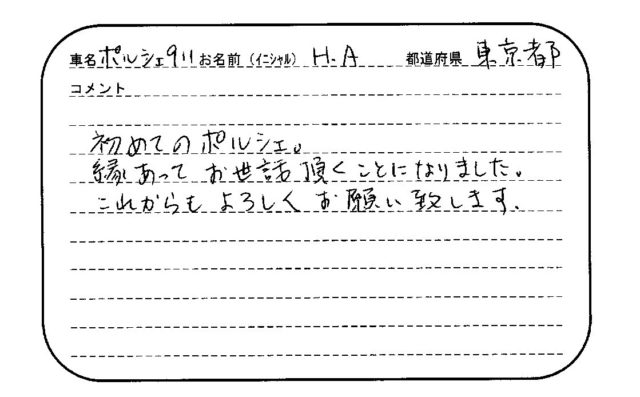 車名 ポルシェ911 お名前（イニシャル） H.A 都道府県 東京都
コメント
初めてのポルシェ。
縁あって お世話頂くことになりました。
これからも よろしく お願い致します.